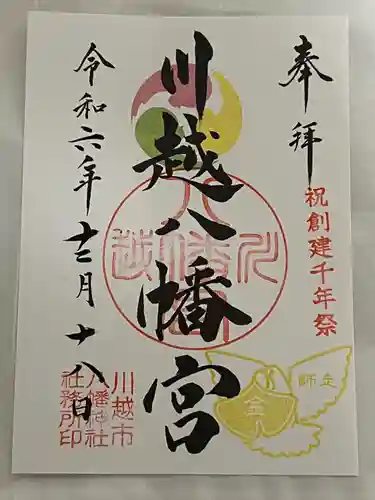 奉拝
祝創建千年祭
川越八幡宮
令和六年十二月十八日
川越市
八幡神社
社務所印